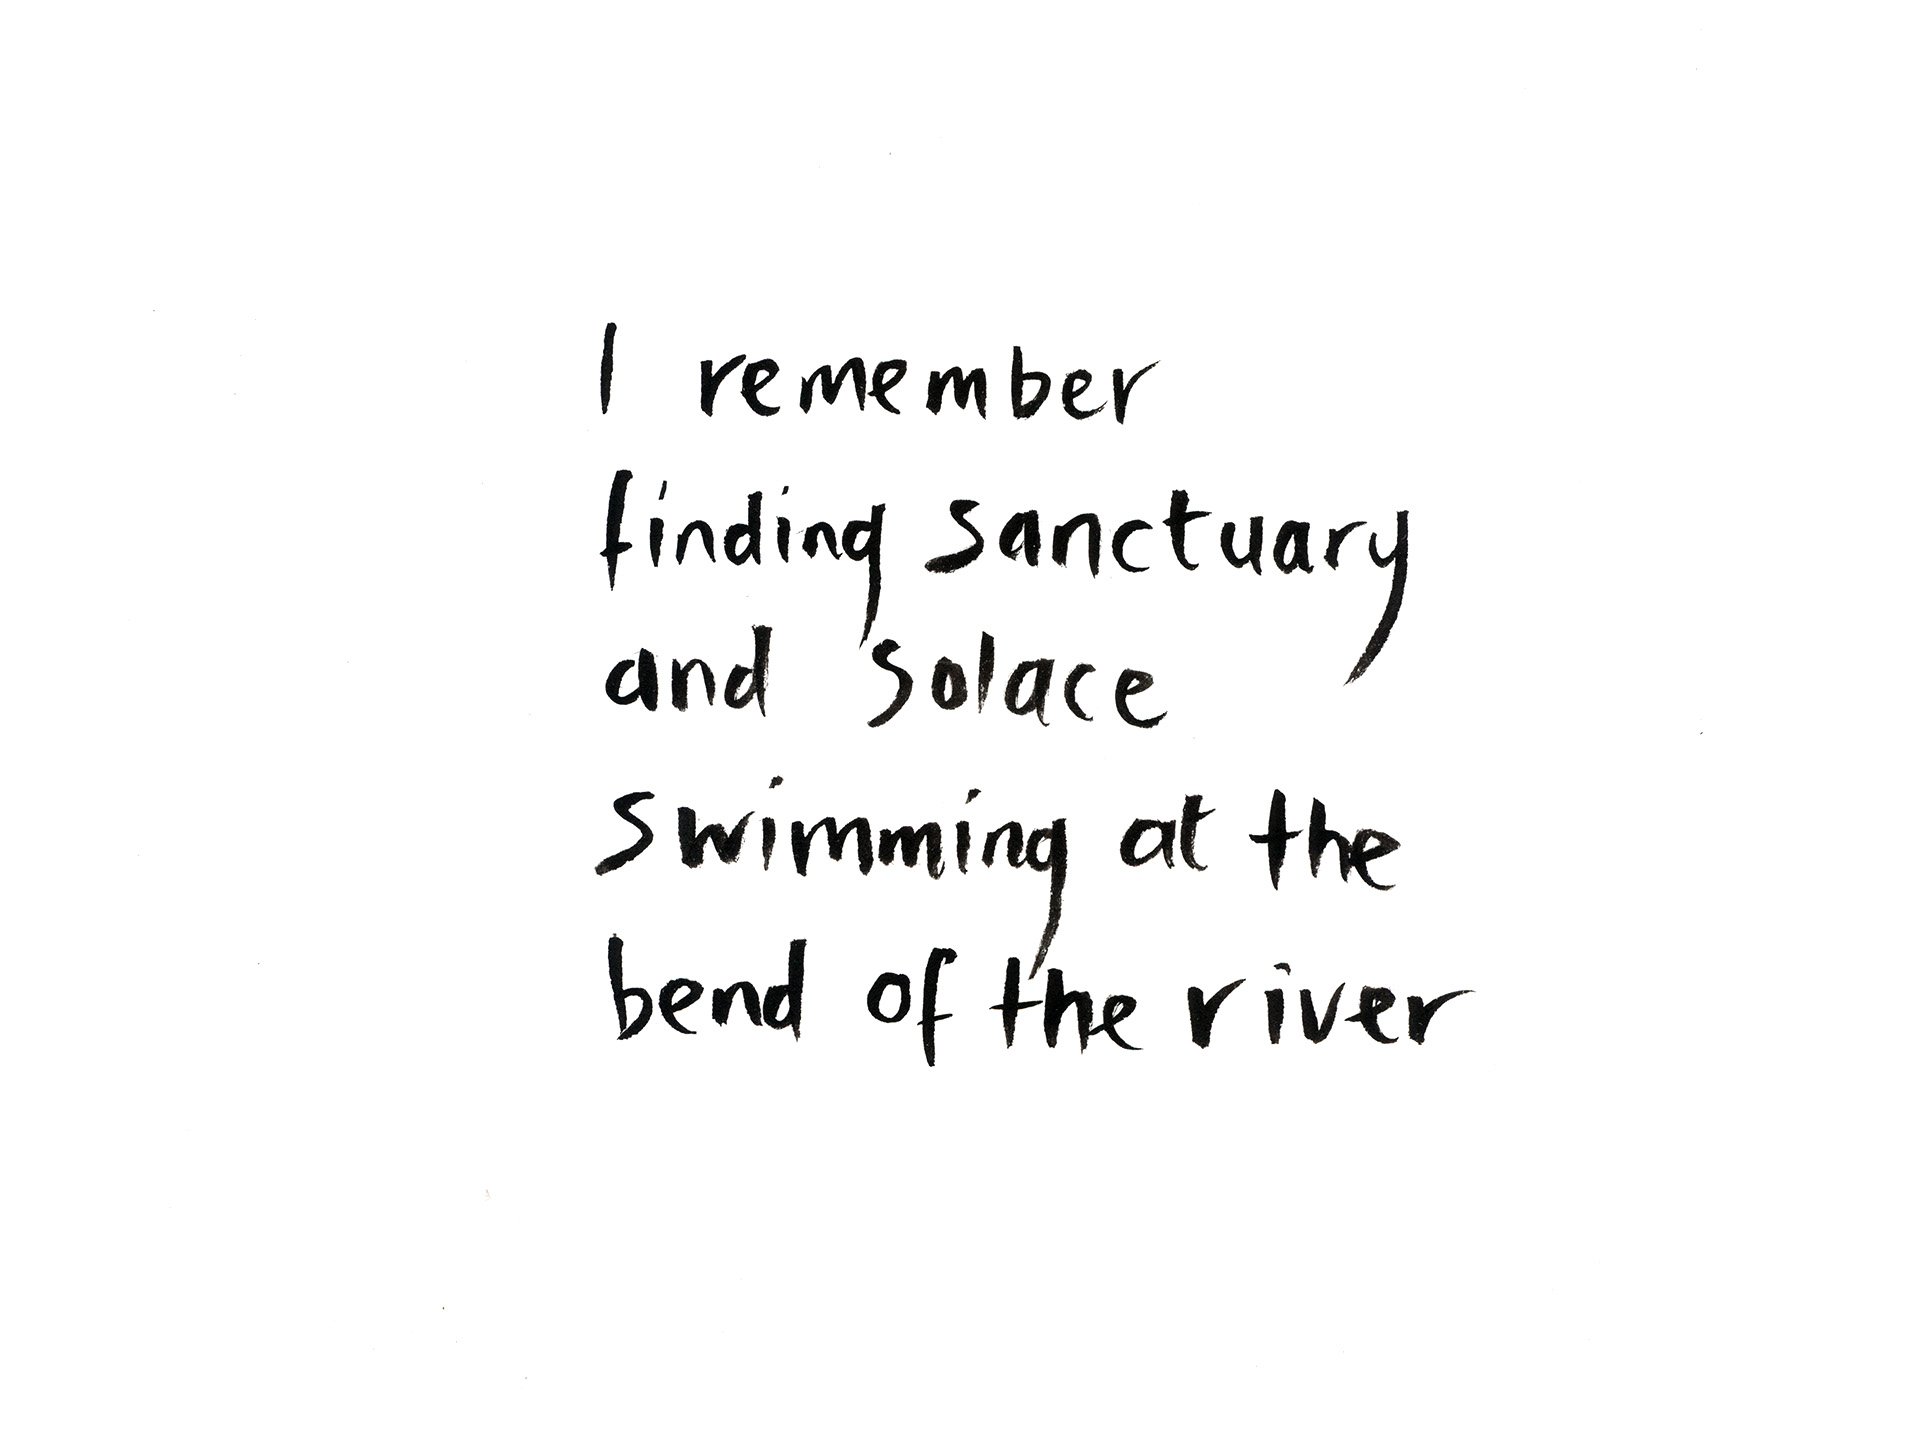 I remember
finding sanctuary
and solace
swimming at the
bend of the river